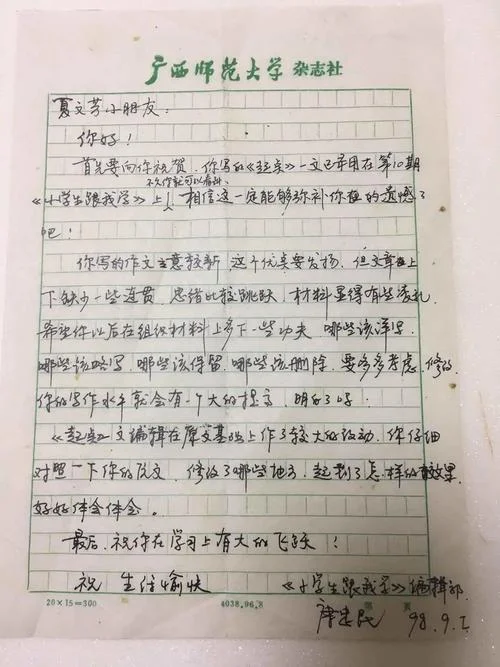 广西师范大学 杂志社
夏文芳小朋友：
你好！
首先要向你祝贺，你写的《起床》一文已采用在第10期
不久你就可以看到
《小学生跟我学》上，相信这一定能够弥补你的遗憾了
吧！
你写的作文立意较新，这个优点要发扬，但文章在上
下缺少一些连贯，思绪比较跳跃，材料显得有些凌乱，
希望你以后在组织材料上多下一些功夫，哪些该详写，
哪些该略写，哪些该保留，哪些该删除，要多多考虑、修改，
你的写作水平就会有一个大的提高，明白了吗
文编辑在原文基础上作了较大的改动，你仔细
对照一下你的原文，修改了哪些地方，起到了怎样的效果，
好好体会体会。
最后，祝你在学习上有大的飞跃！
祝 生活愉快 《小学生跟我学》编辑部
20×15=300 4038.96.8 第 页
98.9.